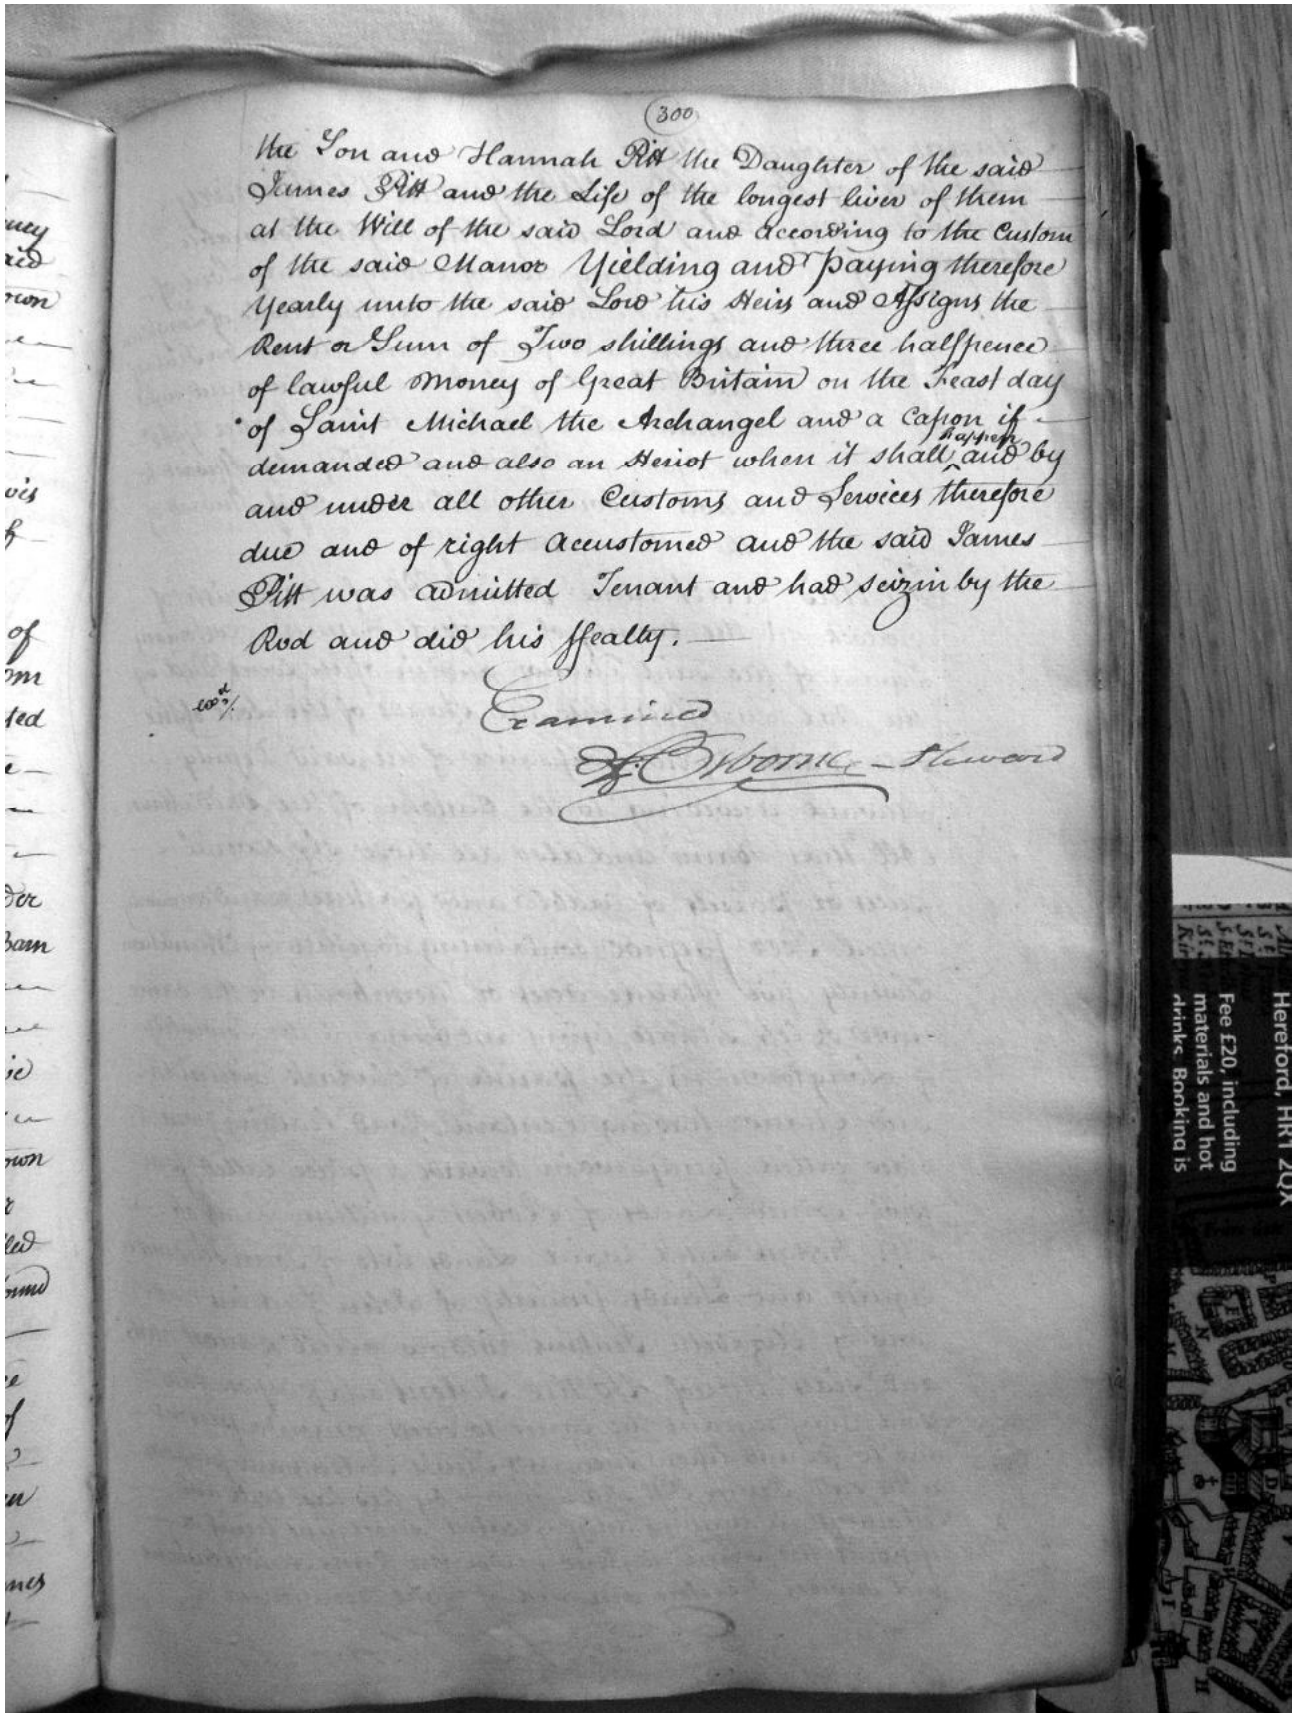 300
the Son and Hannah Pitt the Daughter of the said
James Pitt and the Life of the longest liver of them
at the Will of the said Lord and according to the Custom
of the said Manor Yielding and Paying therefore
Yearly unto the said Lord his Heirs and Assigns the
Rent or Sum of Two shillings and three halfpence
of lawful Money of Great Britain on the Feast day
of Saint Michael the Archangel and a Capon if
happen
demanded and also an Heriot when it shall ^ and by
and under all other Customs and Services therefore
due and of right accustomed and the said James
Pitt was admitted Tenant and had seizin by the
Rod and did his ffealty.
Examined
Osborne Steward
ney
own
of
om
ted
der
Barn
own
led
ound
of
mes
Hereford, HR1 2QX
Fee £20, including
materials and hot
drinks. Booking is